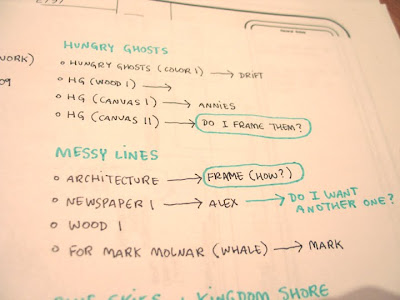 HUNGRY GHOSTS
o HUNGRY GHOSTS (COLOR I) → DRIFT
WORK)
o HG (WOOD I) →
09
o HG (CANVAS I) → ANNIES
o HG (CANVAS II) → DO I FRAME THEM?
MESSY LINES
o ARCHITECTURE → FRAME (HOW?)
o NEWSPAPER I → ALEX → DO I WANT
ANOTHER ONE?
o WOOD I
o FOR MARK MOLNAR (WHALE) → MARK
BLUE SKIES / KINGDOM SHORE